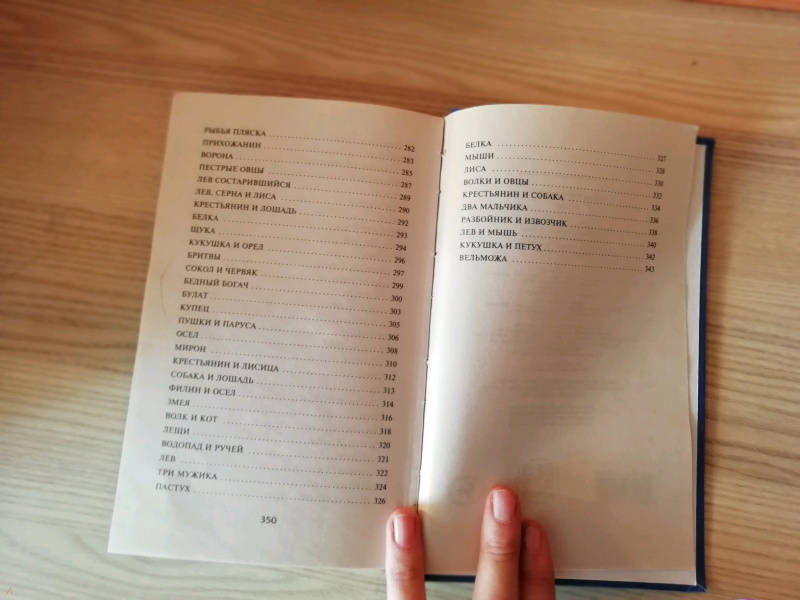 РЫБЬЯ ПЛЯСКА 282
ПРИХОЖАНИН 283
ВОРОНА 285
ПЕСТРЫЕ ОВЦЫ 287
ЛЕВ СОСТАРИВШИЙСЯ 289
ЛЕВ, СЕРНА И ЛИСА 290
КРЕСТЬЯНИН И ЛОШАДЬ 292
БЕЛКА 293
ЩУКА 294
КУКУШКА И ОРЕЛ 296
БРИТВЫ 297
СОКОЛ И ЧЕРВЯК 299
БЕДНЫЙ БОГАЧ 300
БУЛАТ 303
КУПЕЦ 305
ПУШКИ И ПАРУСА 306
ОСЕЛ 308
МИРОН 310
КРЕСТЬЯНИН И ЛИСИЦА 312
СОБАКА И ЛОШАДЬ 313
ФИЛИН И ОСЕЛ 314
ЗМЕЯ 316
ВОЛК И КОТ 318
ЛЕЩИ 320
ВОДОПАД И РУЧЕЙ 321
ЛЕВ 322
ТРИ МУЖИКА 324
ПАСТУХ 326
350
БЕЛКА 327
МЫШИ 328
ЛИСА 330
ВОЛКИ И ОВЦЫ 332
КРЕСТЬЯНИН И СОБАКА 334
ДВА МАЛЬЧИКА 336
РАЗБОЙНИК И ИЗВОЗЧИК 338
ЛЕВ И МЫШЬ 340
КУКУШКА И ПЕТУХ 342
ВЕЛЬМОЖА 343